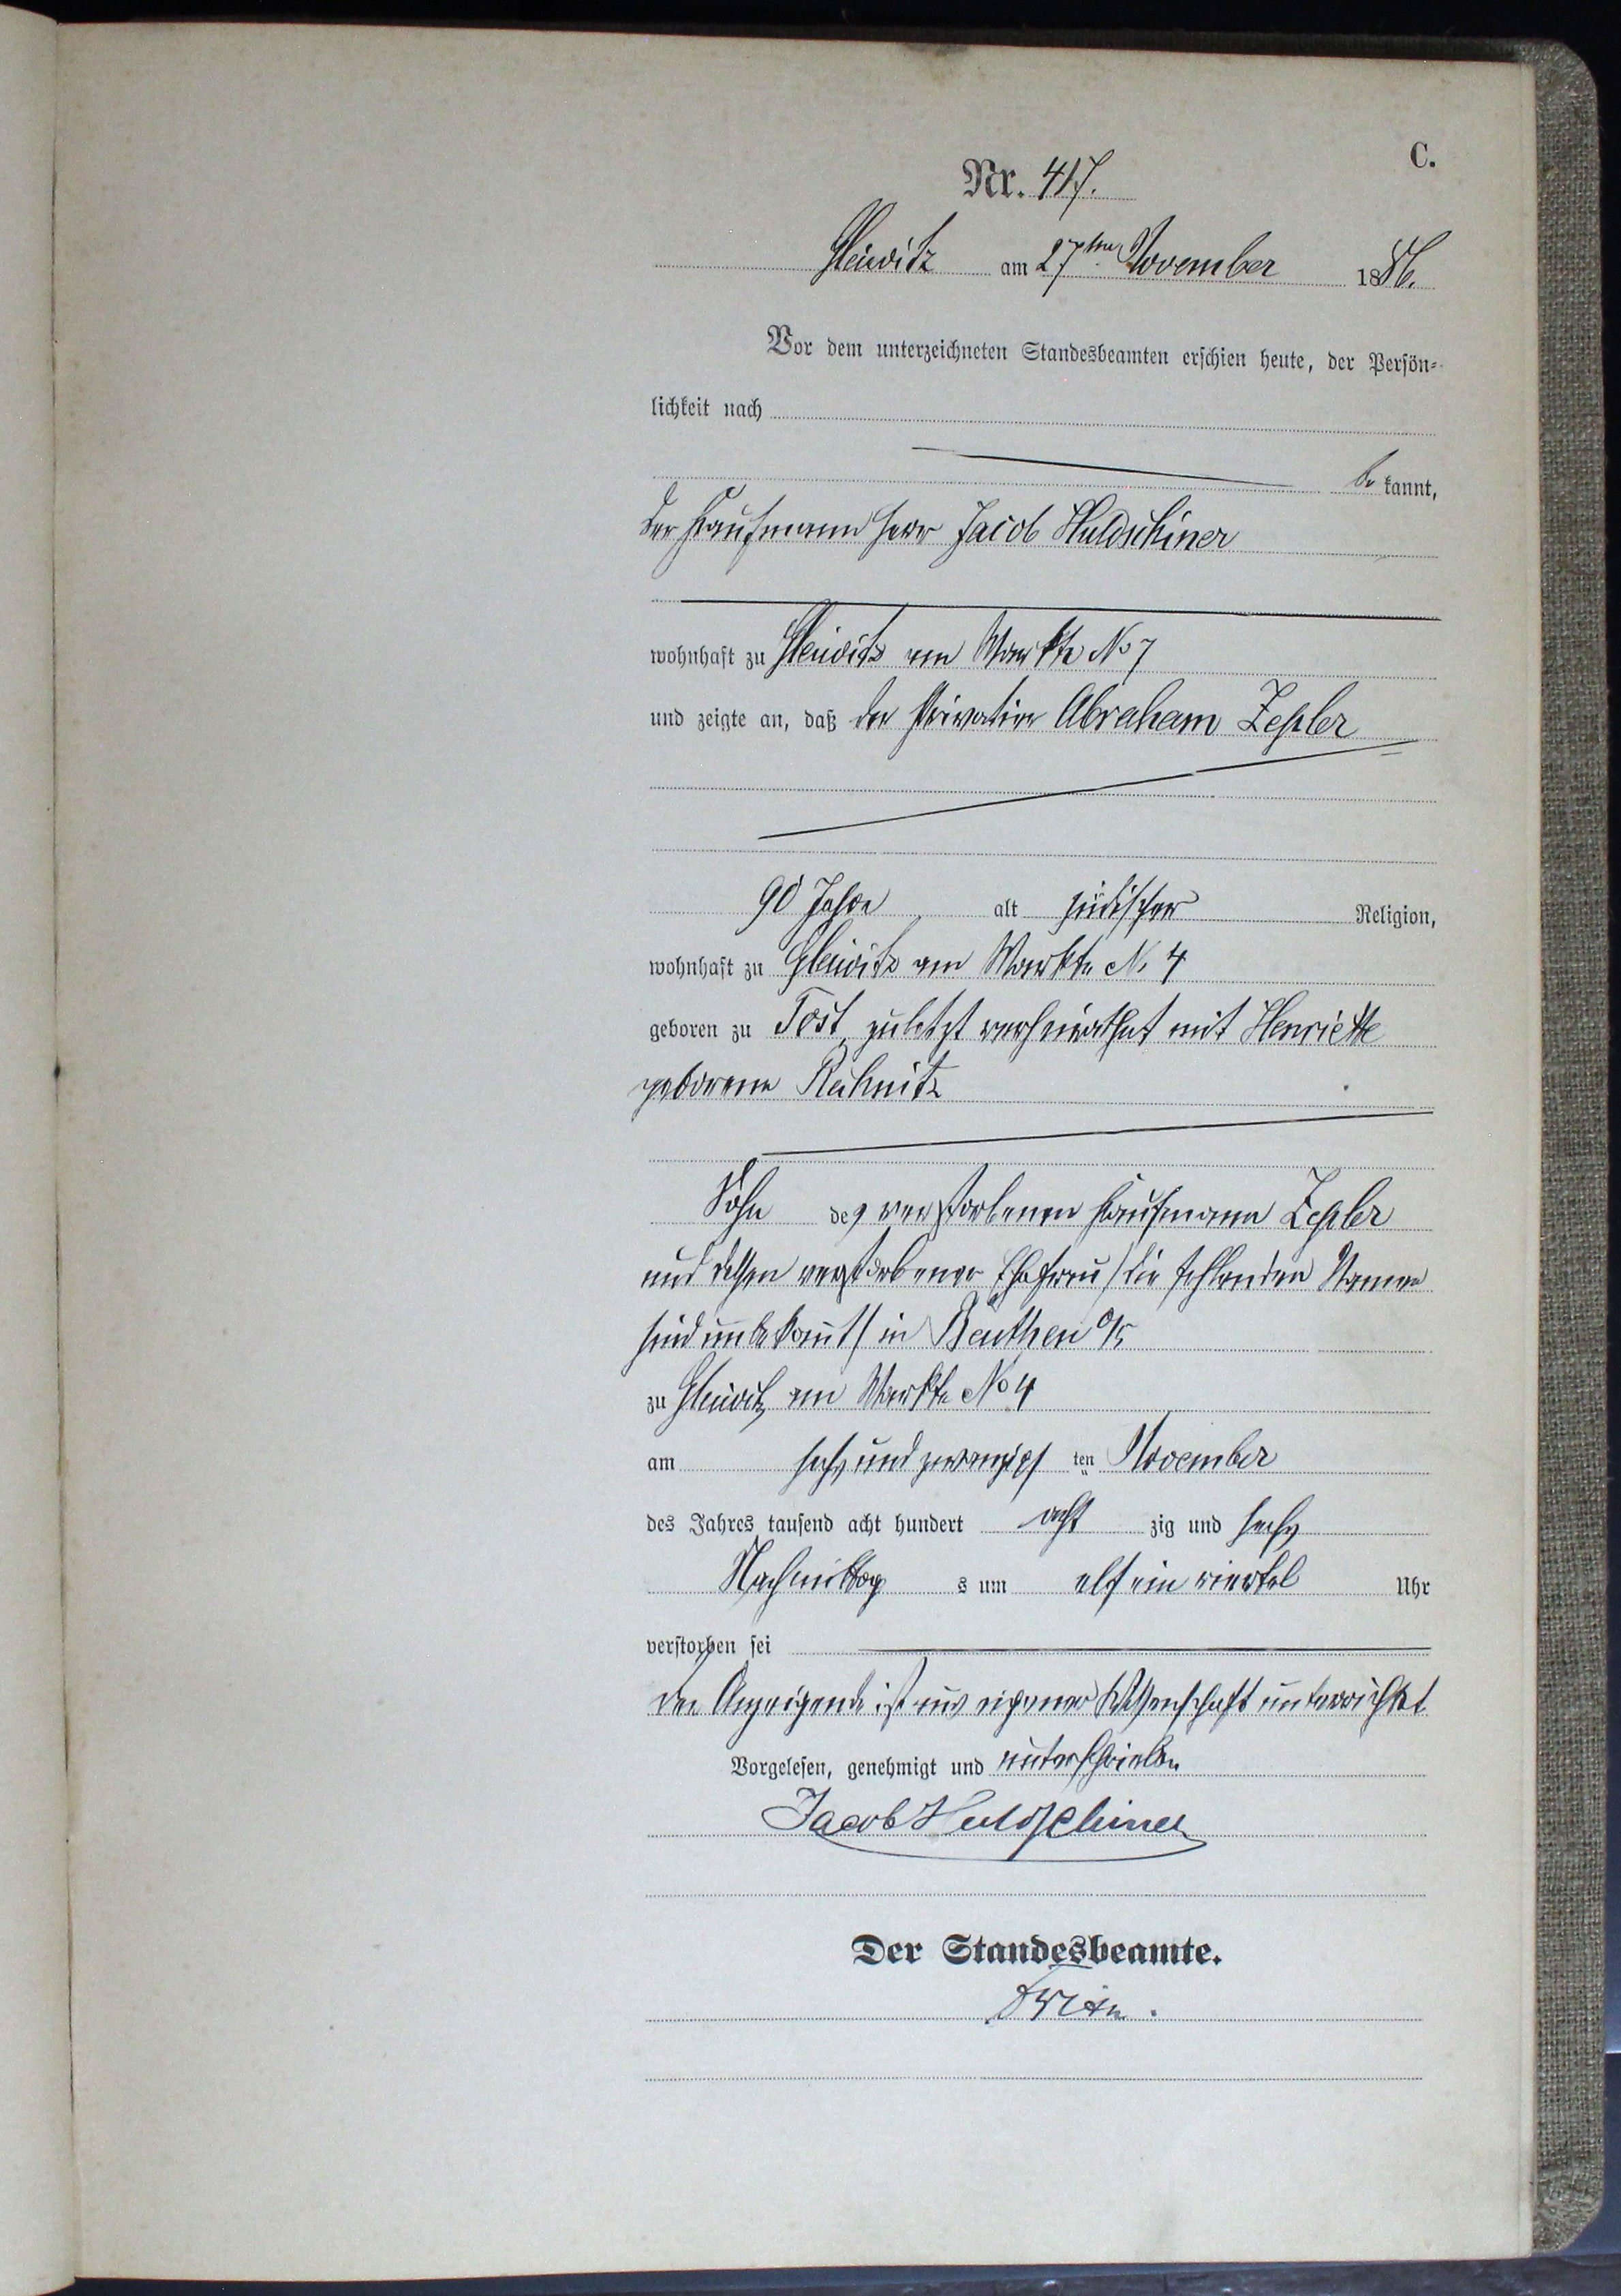 C.
Nr. 417.
Gleiwitz am 27ten November 1886.
Vor dem unterzeichneten Standesbeamten erschien heute, der Persön-
lichkeit nach
be kannt,
der Kaufmann Herr Jacob Huldschiner
wohnhaft zu Gleiwitz am Markte No 7
und zeigte an, daß der Privatier Abraham Zepler
90 Jahre alt jüdischer Religion,
wohnhaft zu Gleiwitz am Markte No 4
geboren zu Tost, zuletzt verheirathet mit Henriette
geborene Rechnitz
Sohn des verstorbenen Kaufmann Zepler
und dessen verstorbener Ehefrau /die fehlenden Namen
sind unbekannt/ in Beuthen O/S
zu Gleiwitz am Markte No 4
am sechs und zwanzigs ten November
des Jahres tausend acht hundert acht zig und sechs
Nachmittag s um elf ein viertel Uhr
verstorben sei
Der Anzeigende ist aus eigener Wissenschaft unterrichtet
Vorgelesen, genehmigt und unterschrieben
Jacob Huldschiner
Der Standesbeamte.